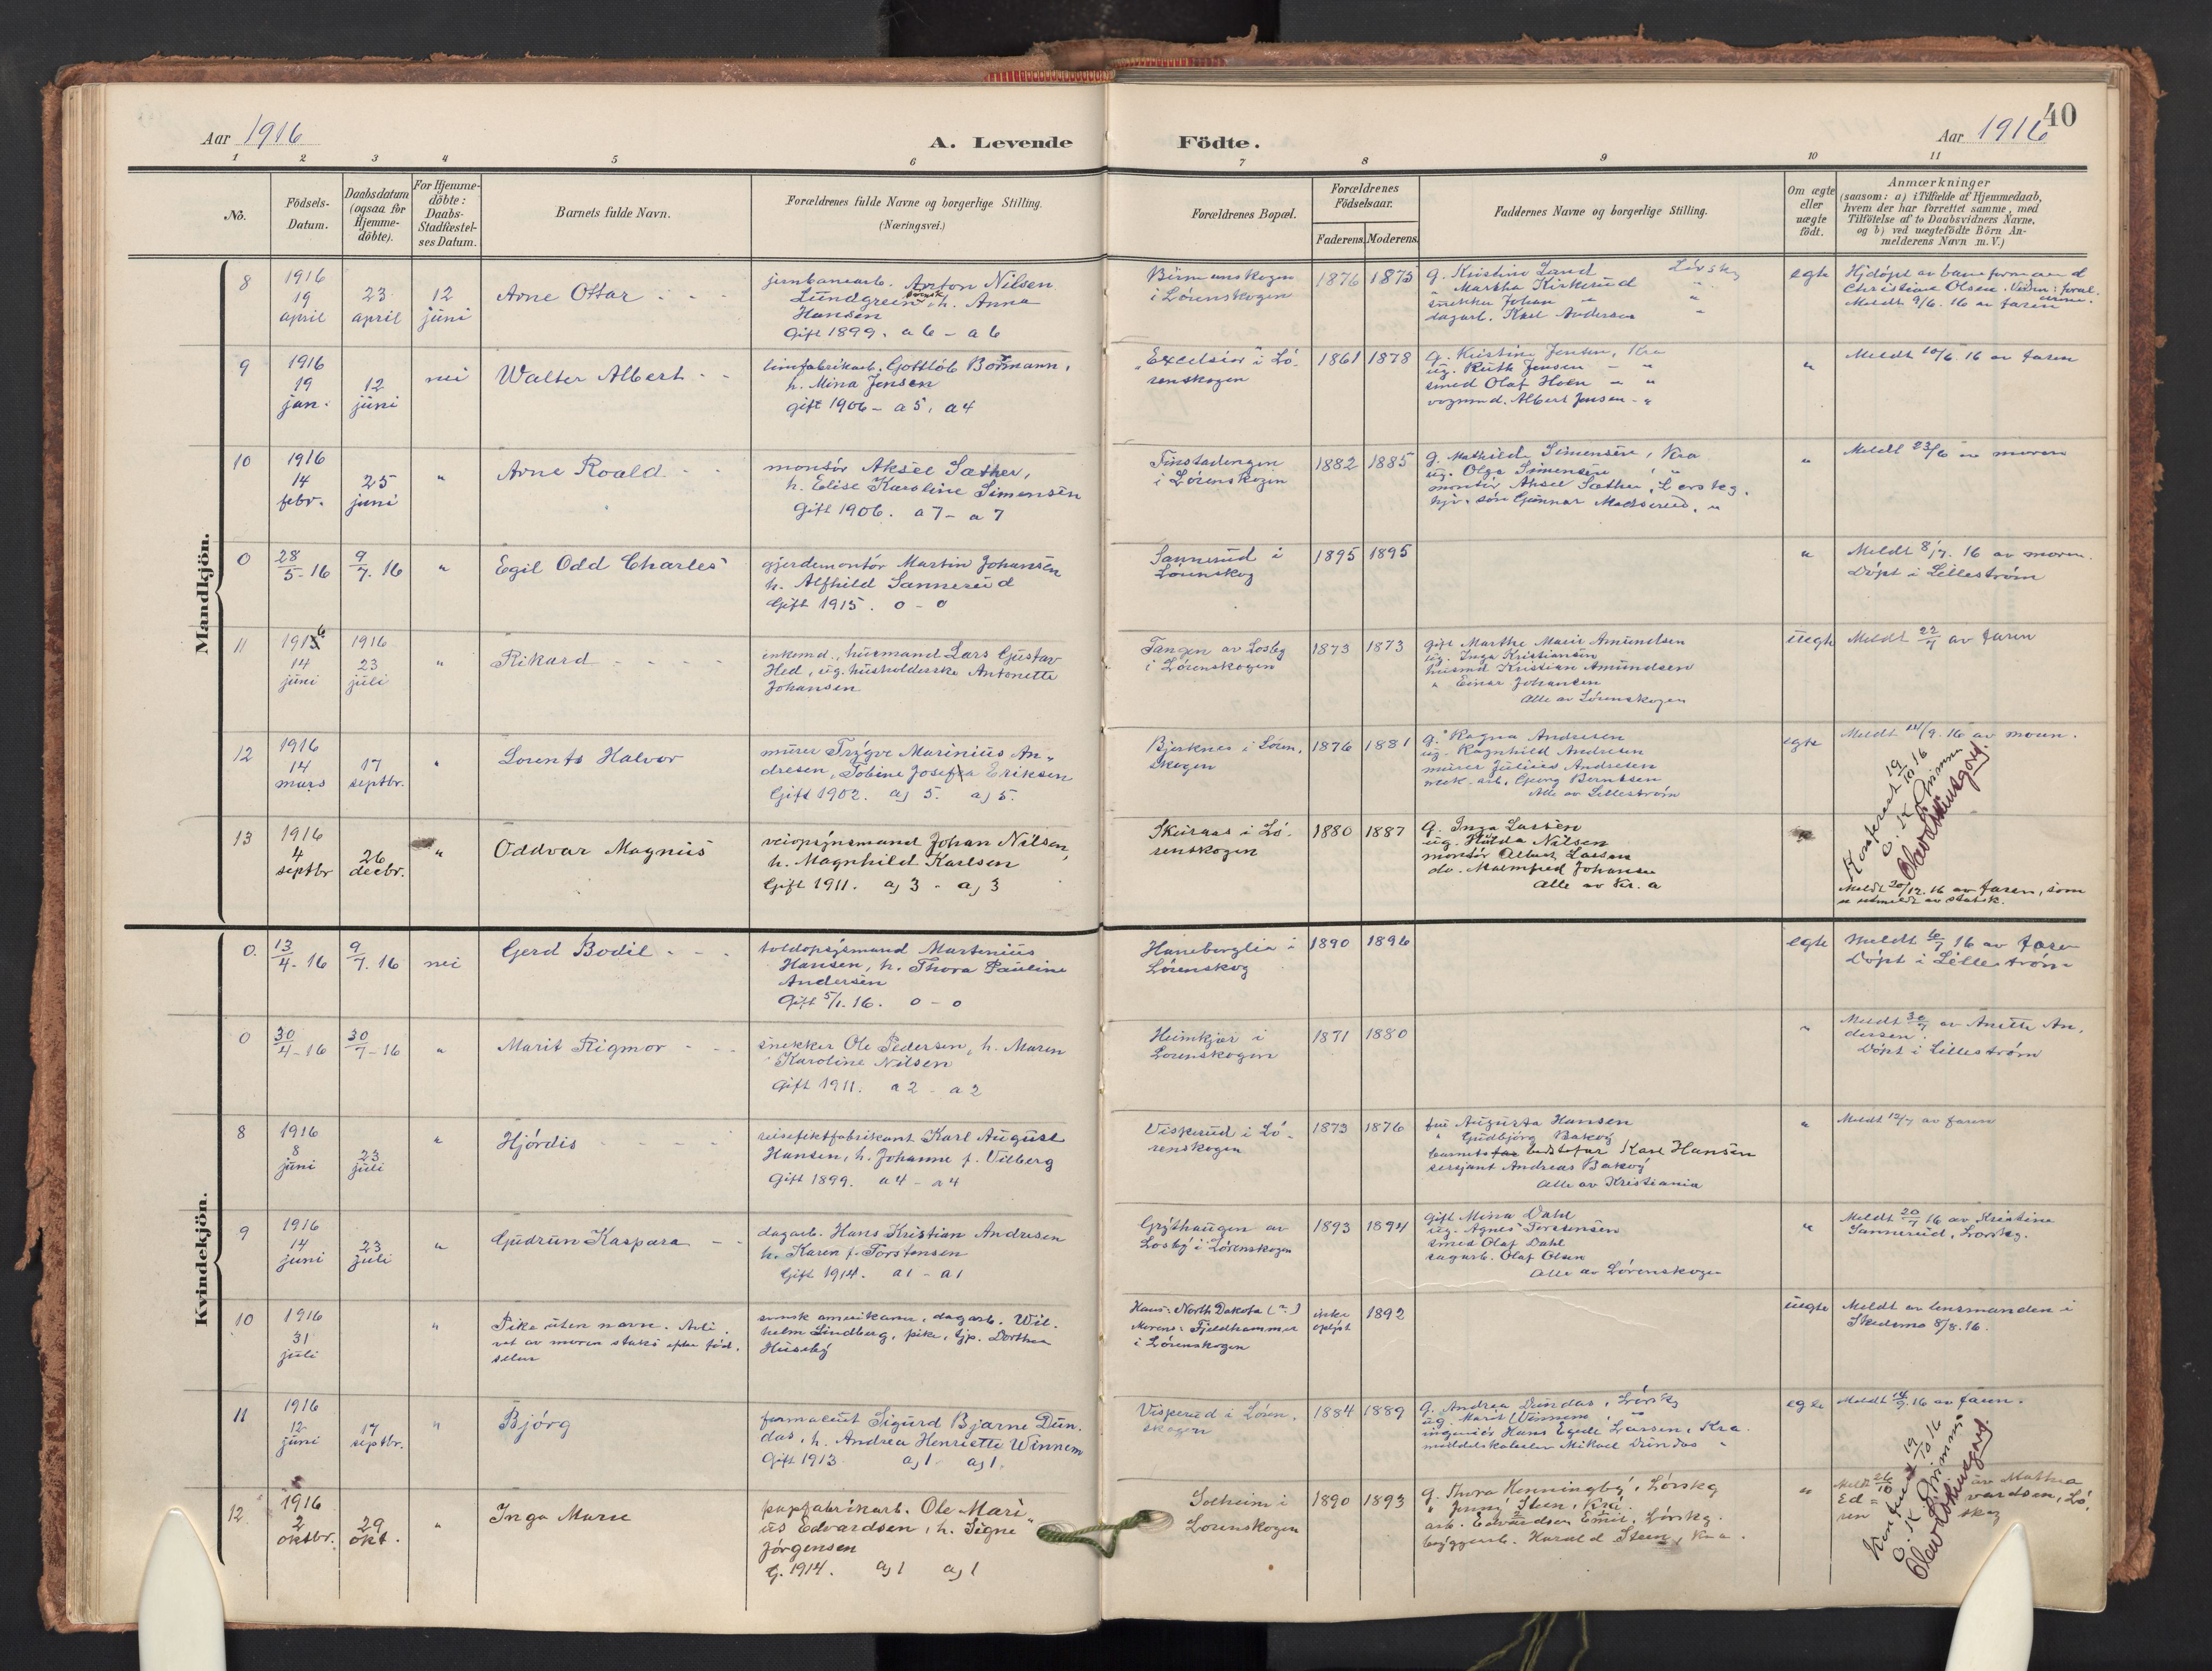 40
Aar 1916
A. Levende
Födte.
Aar 1916
1 2 3 4 5 6 7 8 9 10 11
No.
Födsels-
Datum.
Daabsdatum
(ogsaa for
Hjemme-
döbte).
For Hjemme-
döbte:
Daabs-
Stadfæstel-
ses Datum.
Barnets fulde Navn.
Forældrenes fulde Navne og borgerlige Stilling.
(Næringsvei.)
Forældrenes Bopæl.
Forældrenes
Fødselsaar.
Faderens. Moderens.
Faddernes Navne og borgerlige Stilling.
Om ægte
eller
uægte
födt.
Anmærkninger
(saasom: a) i Tilfælde af Hjemmedaab,
hvem der har forrettet samme, med
Tilföielse af to Daabsvidners Navne,
og b) ved uægtefödte Börn An-
melderens Navn m. V.)
Mandkjön.
8
1916
19
april
23
april
12
juni
Arne Ottar
jernbanearb. Anton Nilsen
Lundgreen, svensk h. Anna
Hansen
Gift 1899. a 6 - a 6
i Lørenskogen
1876 1875
g. Kristine Sand Lörskg
" Martha Kirkerud "
snekker Johan " "
dagarb. Karl Andersen "
egte
Hjdöpt av
Christiane Olsen.
Meldt 9/6. 16 av faren
9
1916
19
jan.
12
juni
nei
Walter Albert
limfabrikarb. Gottlob Bormann,
h. Mina Jensen
gift 1906 - a 5, a 4
"Excelsior" i Lö-
renskogen
1861 1878
g. Kristine Jensen, Kra
ug. Ruth Jensen - "
smed Olaf Hoen - "
vognmd. Albert Jensen - "
"
Meldt 10/6. 16 av faren
10
1916
14
febr.
25
juni
"
Arne Roald
montör Aksel Sæther,
h. Elise Karoline Simensen
Gift 1906. a 7 - a 7
Finstadengen
i Lörenskogen
1882 1885
g. Mathilde Simensen, Kra
ug. Olga Simensen, "
montör Aksel Sæther, Lörskg.
hjv. søn Gunnar Madserud, "
"
Meldt 23/6 av moren
0
28/5-16
9/7. 16
"
Egil Odd Charles
gjerdemontör Martin Johansen
h. Alfhild Sannerud
Gift 1915. 0 - 0
Sannerud i
Lörenskog
1895 1895
"
Meldt 8/7. 16 av moren.
Döpt i Lilleström
11
1916
14
juni
1916
23
juli
"
Rikard
enkemd., husmand Lars Gustav
Hed, ug. husholderske Antonette
Johansen
Tangen av Losby
i Lörenskogen
1873 1873
gift Marthe Marie Amundsen
ug. Inga Kristiansen
husmd Kristian Amundsen
" Einar Johansen
Alle av Lörenskogen
uegte
Meldt 22/7 av faren
12
1916
14
mars
17
septbr.
"
Lorents Halvor
murer Trygve Marinius An-
dresen, Tobine Josefa Eriksen
Gift 1902. aj 5. aj 5.
Bjerknes i Lören-
skogen
1876 1881
g. Ragna Andresen
ug. Ragnhild Andresen
murer Julius Andresen
mek. arb. Georg Berntsen
Alle av Lilleström
egte
Meldt 14/9. 16 av moren.
Konferert 19/10 16
13
1916
4
septbr
26
decbr.
"
Oddvar Magnus
veiopsynsmand Johan Nilsen,
h. Magnhild Karlsen
Gift 1911. aj 3 - aj 3
Skårøas i Lö-
renskogen
1880 1887
g. Inga Larsen
ug. Hulda Nilsen
montör Albert Larsen
do. Malmfred Johansen
Alle av Kr.a
Meldt 20/12. 16 av faren, som
er utmeldt av statsk.
Kvindekjön.
0.
13/4. 16
9/7. 16
nei
Gerd Bodil
toldopsynsmand Martenius
Hansen, h. Thora Pauline
Andersen
Gift 5/1. 16. 0 - 0
Haneborglia i
Lörenskog
1890 1896
egte
Meldt 6/7 16 av faren
Döpt i Lilleström
0
30/4-16
30/7-16
"
Marit Rigmor
snekker Ole Pedersen, h. Maren
Karoline Nilsen
Gift 1911. a 2 - a 2
Heimkjær i
Lörenskogen
1871 1880
"
Meldt 30/7 av Anette An-
dersen.
Döpt i Lilleström
8
1916
8
juni
23
juli
"
Hjördis
reiseeffektfabrikant Karl August
Hansen, h. Johanne f. Vilberg
Gift 1899. a 4 - a 4
Viskerud i Lö-
renskogen
1873 1876
fru Augusta Hansen
" Gudbjörg Bakøy
barnets bedstefar Karl Hansen
sersjant Andreas Bakøy
Alle av Kristiania
"
Meldt 12/7 av faren
9
1916
14
juni
23
juli
"
Gudrun Kaspara
dagarb. Hans Kristian Andresen
h. Karen f. Torstensen
Gift 1914. a 1 - a 1
Grythaugen av
Losby i Lörenskogen
1893 1894
gift Mina Dahl
ug. Agnes Torstensen
smed Olaf Dahl
sagarb. Olaf Olsen
Alle av Lörenskogen
"
Meldt 20/7 16 av Kristine
Sannerud, Lörskg.
10
1916
31
juli
"
Pike uten navn. Avli-
vet av moren straks efter föd-
selen
svensk amerikaner, dagarb. Wil-
helm Lindberg, pike, tjp. Dorthea
Huseby
Hans: North Dakota (?)
Morens: Fjeldhammer
i Lörenskogen
ikke
oplyst
1892
uegte
Meldt av lensmanden i
Skedsmo 8/8. 16.
11
1916
12
juni
17
septbr.
"
Bjørg
farmaceut Sigurd Bjarne Dun-
das, h. Andrea Henriette Winnem
Gift 1913 aj 1 aj 1.
Viskerud i Lören-
skogen
1884 1889
g. Andrea Dundas, Lörskg
ug. Marit Winnem "
ingeniör Hans Egede Larsen, Kra.
middelskoleelev Mikael Dundas "
egte
Meldt 14/9. 16 av faren.
Konferert 19/10 16
12
1916
2
oktbr.
29
okt.
"
Inga Marie
papfabrikarb. Ole Mari-
us Edvardsen, h. Signe
Jörgensen
G. 1914. aj 1 aj 1
Solheim i
Lörenskogen
1890 1893
g. Thora Henningby, Lörskg
" Jenny Steen, Kra.
arb. Edvardsen Emil, Lörskg.
bryggerarb. Harald Steen, Kra.
"
Meldt 26/10 av Mathea
Ed = vardsen, Lö-
ren skog